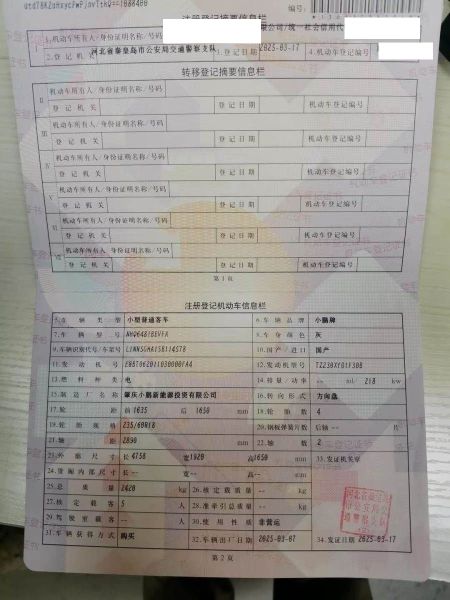 注册登记摘要信息栏
1.机动车所有人/身份证明名称/号码
有限公司/统一社会信用代
2.登记机关 河北省秦皇岛市公安局交通警察支队 3.登记日期 2025-03-17 4.机动车登记编号
转移登记摘要信息栏
II 机动车所有人/身份证明名称/号码
登记机关 登记日期 机动车登记编号
III 机动车所有人/身份证明名称/号码
登记机关 登记日期 机动车登记编号
IV 机动车所有人/身份证明名称/号码
登记机关 登记日期 机动车登记编号
V 机动车所有人/身份证明名称/号码
登记机关 登记日期 机动车登记编号
VI 机动车所有人/身份证明名称/号码
登记机关 登记日期 机动车登记编号
VII 机动车所有人/身份证明名称/号码
登记机关 登记日期 机动车登记编号
第1页
注册登记机动车信息栏
5.车辆类型 小型普通客车 6.车辆品牌 小鹏牌
7.车辆型号 8.车身颜色 灰
9.车辆识别代号/车架号 10.国产/进口 国产
11.发动机号 12.发动机型号
13.燃料种类 电 14.排量/功率 -- ml/ 218 kw
15.制造厂名称 肇庆小鹏新能源投资有限公司 16.转向形式 方向盘
17.轮距 前 1635 后 1650 mm 18.轮胎数 4
19.轮胎规格 235/60R18 20.钢板弹簧片数 后轴 -- 片
21.轴距 2890 mm 22.轴数 2
23.外廓尺寸 长 4758 宽 1920 高 1650 mm 33.发证机关章
24.货厢内部尺寸 长 -- 宽 -- 高 -- mm
25.总质量 2420 kg 26.核定载质量 -- kg
27.核定载客 5 人 28.准牵引总质量 -- kg
29.驾驶室载客 -- 人 30.使用性质 非营运
31.车辆获得方式 购买 32.车辆出厂日期 2025-03-07 34.发证日期 2025-03-17
河北省秦皇岛
市公安局交
通警察支队
第2页